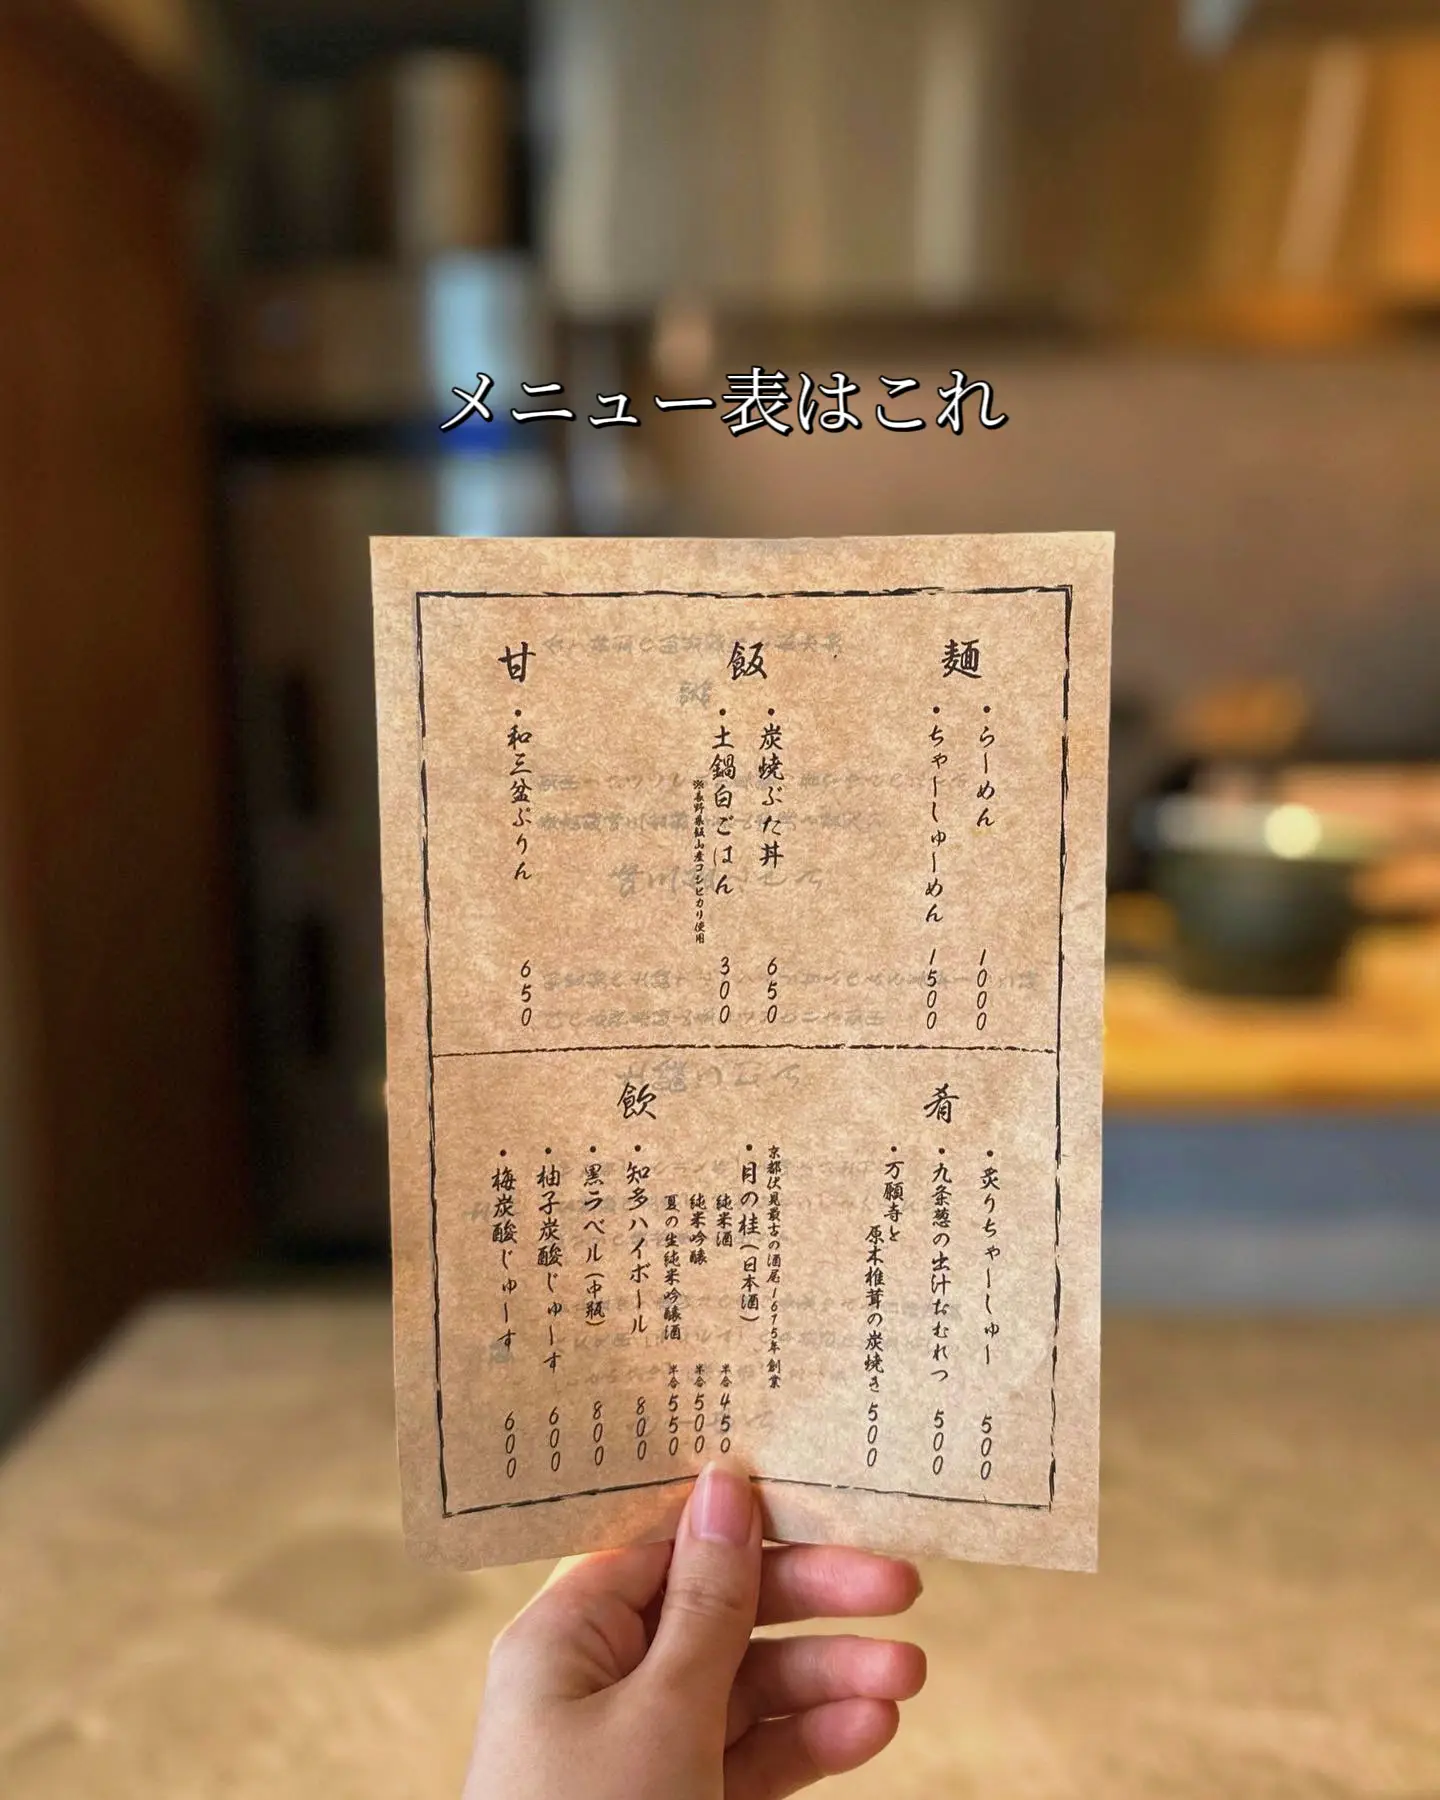 メニュー表はこれ
麺
・らーめん 1000
・ちゃーしゅーめん 1500
飯
・炭焼ぶた丼 650
・土鍋白ごはん 300
※長野県飯山産コシヒカリ使用
甘
・和三盆ぷりん 650
肴
・炙りちゃーしゅー 500
・九条葱の出汁おむれつ 500
・万願寺と
原木椎茸の炭焼き 500
飲
京都伏見最古の酒屋1675年創業
・月の桂(日本酒)
純米酒 半合 450
純米吟醸 半合 500
夏の生純米吟醸酒 半合 550
・知多ハイボール 800
・黒ラベル(中瓶) 800
・柚子炭酸じゅーす 600
・梅炭酸じゅーす 600